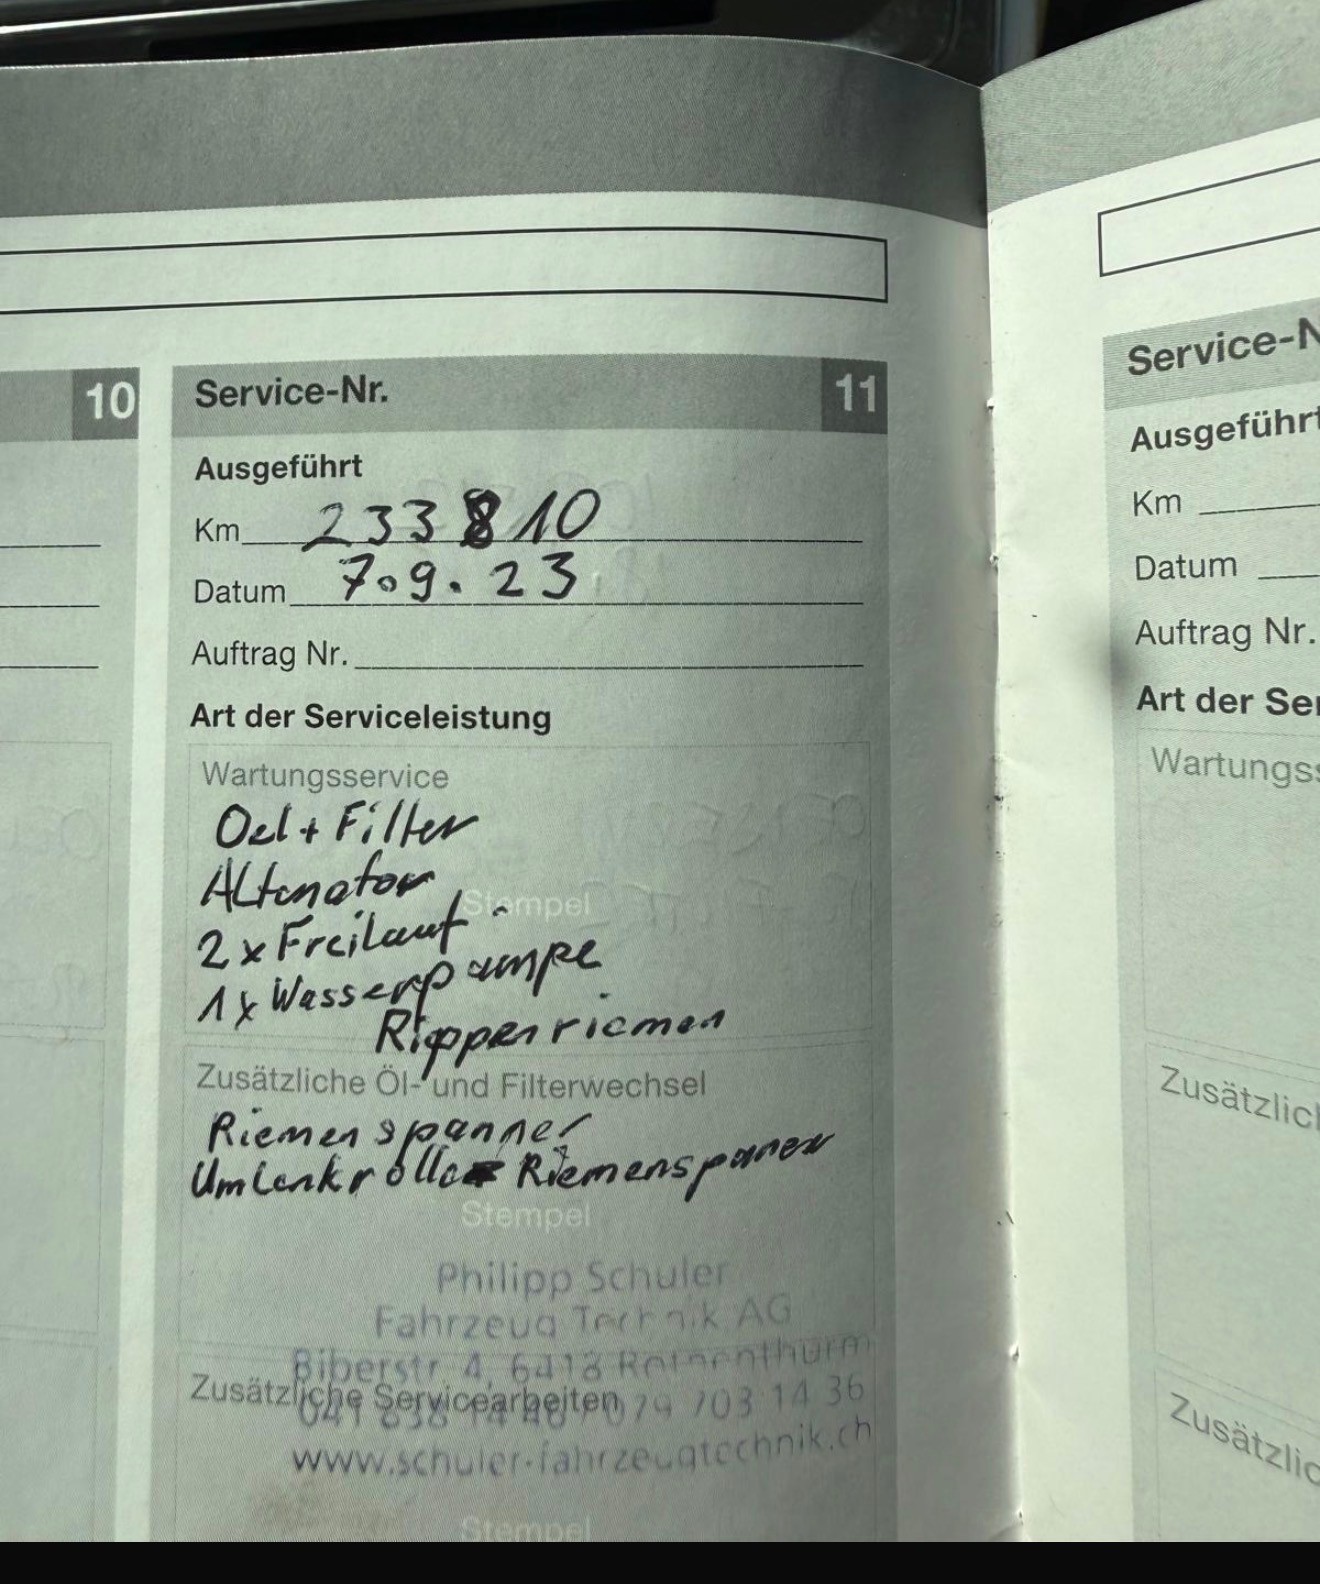 10
Service-Nr. 11
Ausgeführt
Km 233810
Datum 7.9.23
Auftrag Nr.
Art der Serviceleistung
Wartungsservice
Oel + Filter
Alternator
Stempel
2x Freilauf
1x Wasserpumpe
Rippenriemen
Zusätzliche Öl- und Filterwechsel
Riemenspanner
Umlenkrolle Riemenspaner
Stempel
Philipp Schuler
Fahrzeug Technik AG
Biberstr. 4, 6418 Rothenthurm
Zusätzliche Servicearbeiten
079 703 14 36
www.schuler-fahrzeugtechnik.ch
Stempel
Service-N
Ausgeführt
Km
Datum
Auftrag Nr.
Art der Ser
Wartungss
Zusätzlich
Zusätzlic